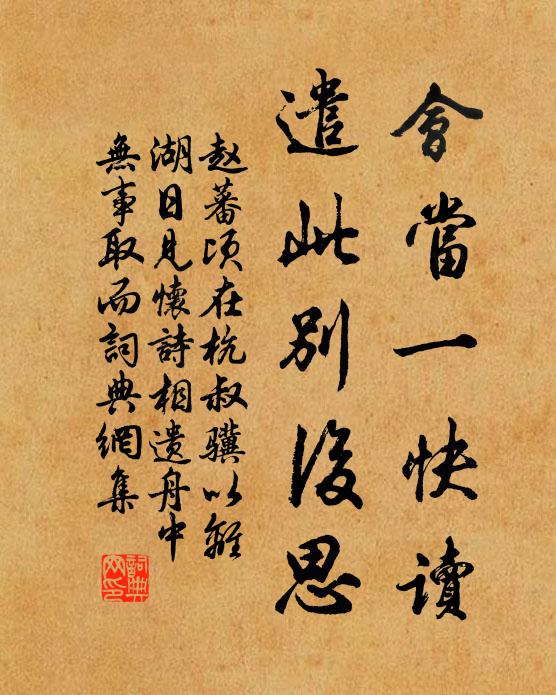 會當一快讀
遣此別後思
赵蕃頃在杭叔驥以離
湖日見懷詩相遺舟中
無事取而詞典網集
詞典網印